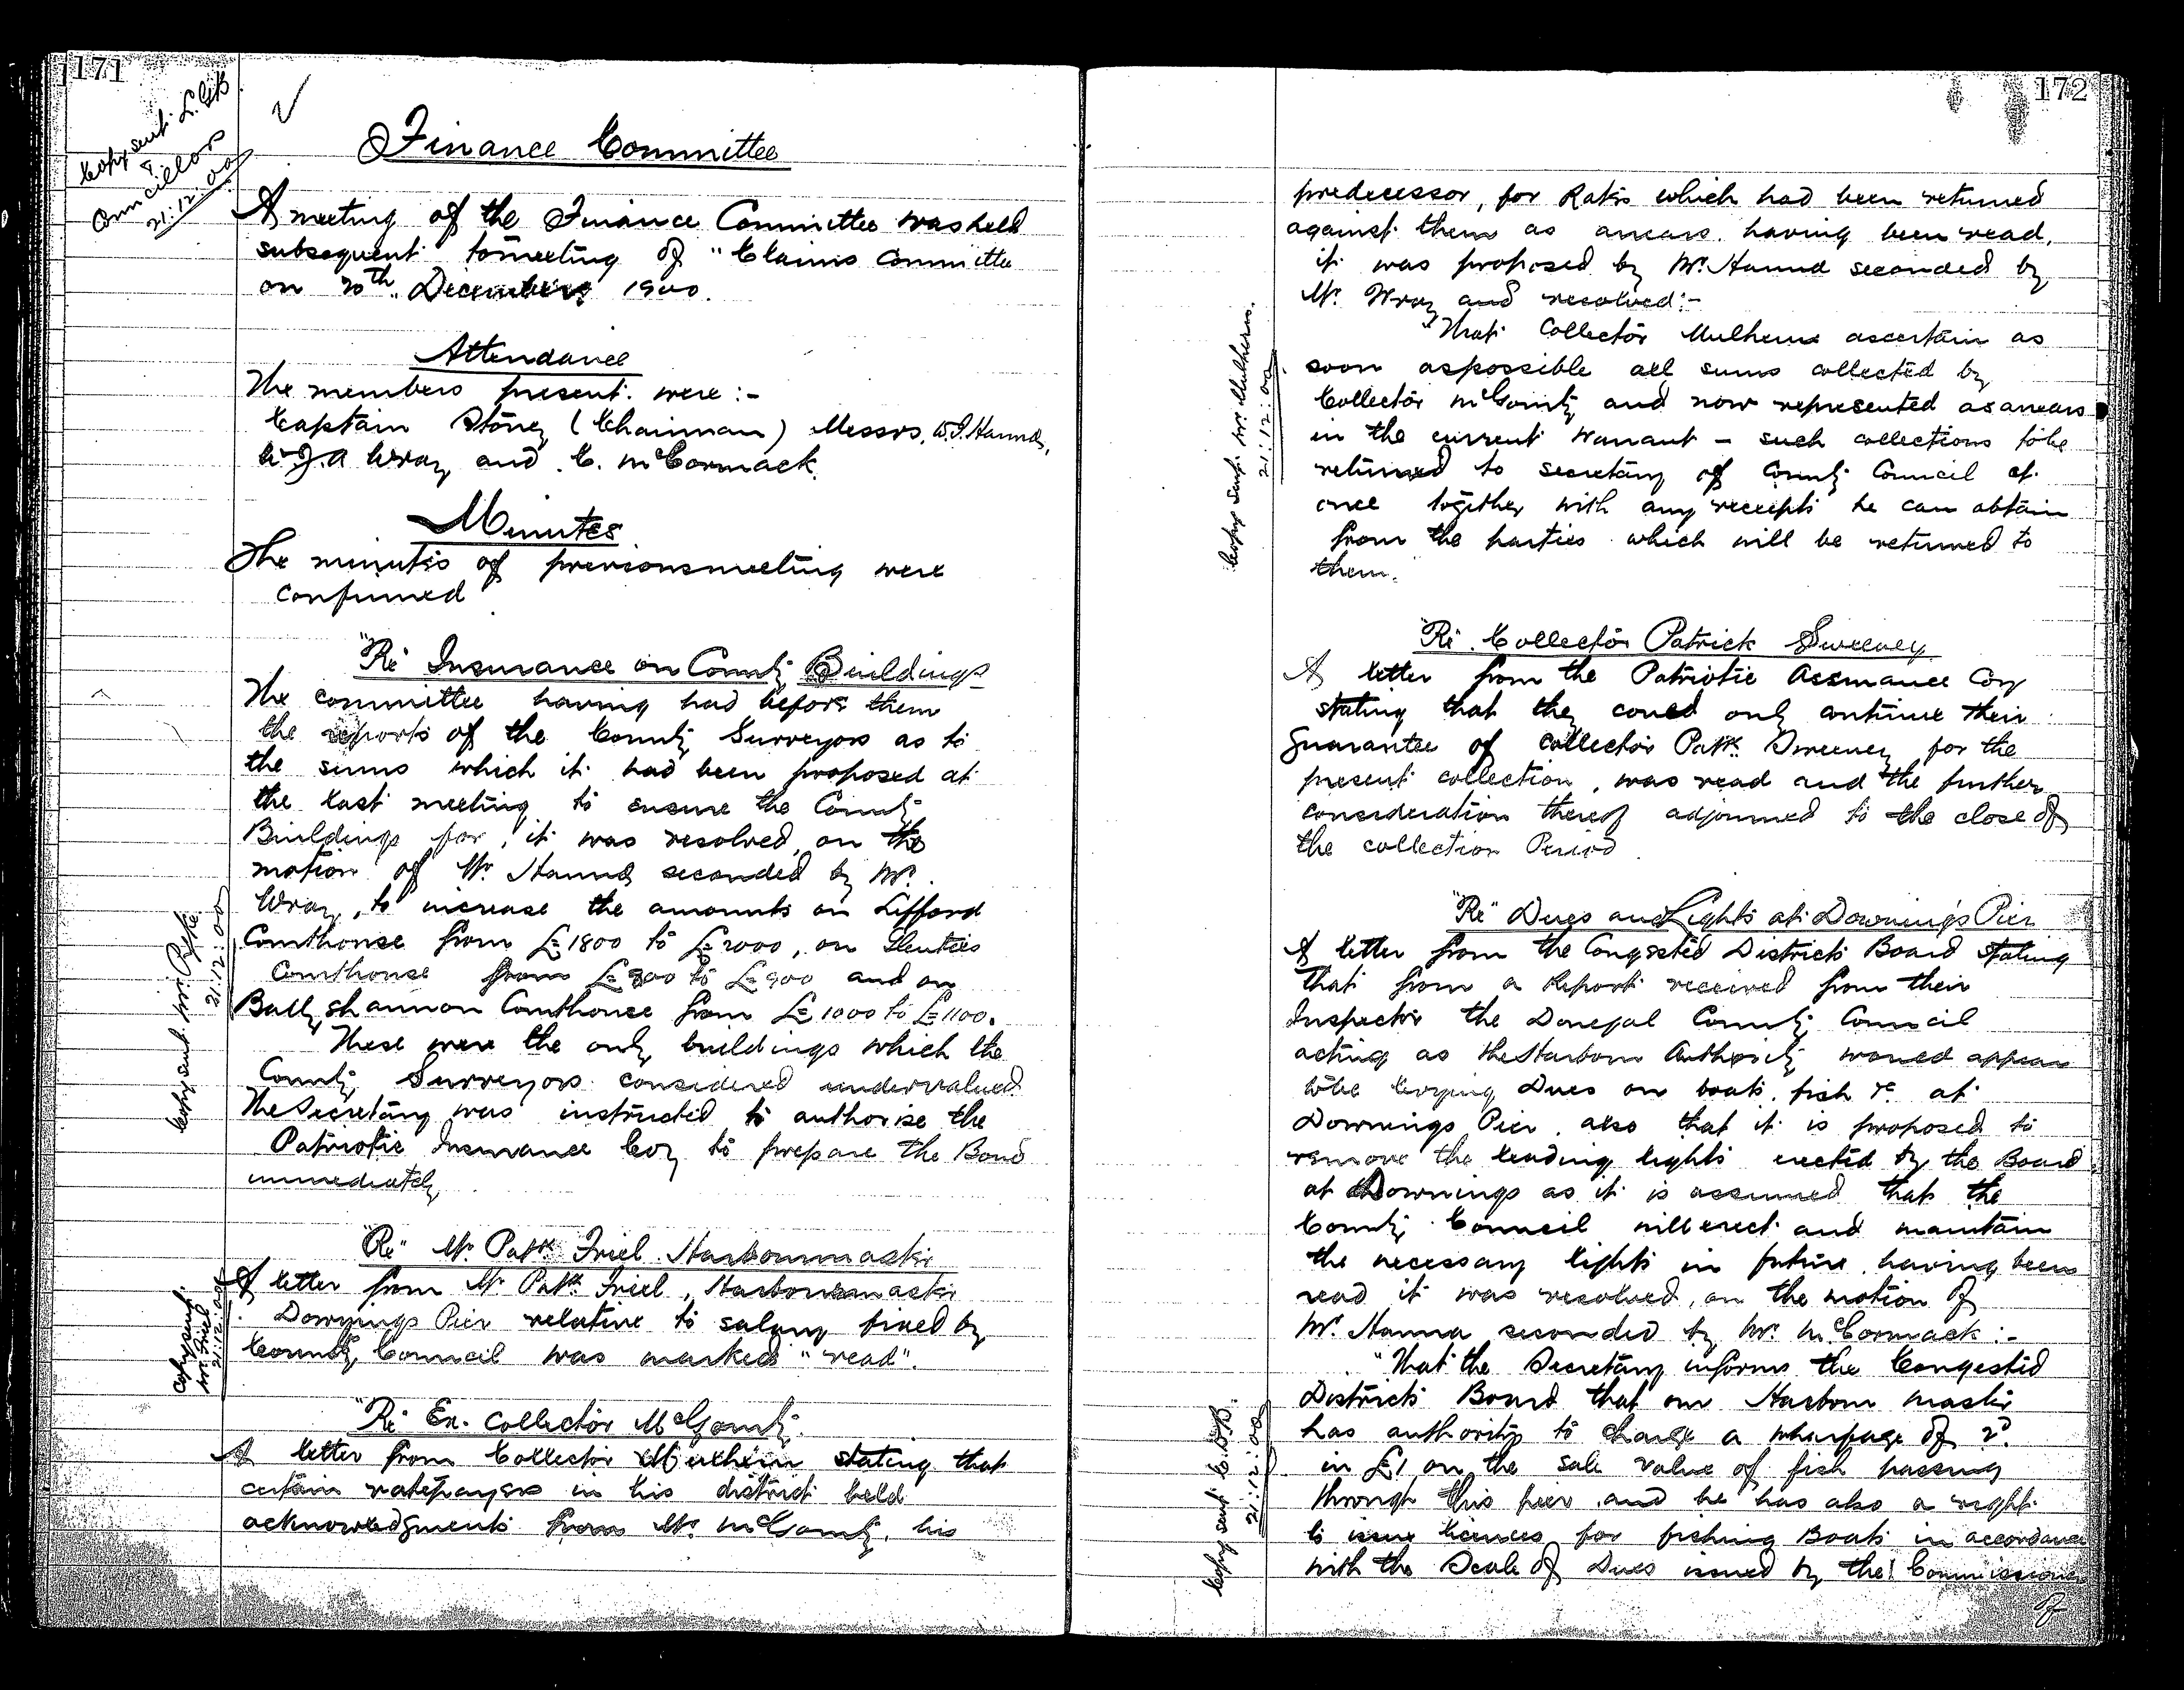 171
Copy sent L.G.B
&
Councillors
21:12:00
Finance Committee
A meeting of the Finance Committee was held
subsequent to meeting of "Claims Committee
on 20th December 1900.
Attendance
The members present were :-
Captain Stoney (Chairman) Messrs, W.J. Hanna,
W.J.A Wray and C. McCormack.
Minutes
The minutes of previous meeting were
confirmed
"Re" Insurance on County Buildings
The committee having had before them
the reports of the County Surveyors as to
the sums which it had been proposed at
the last meeting to ensure the County
Buildings for, it was resolved, on the
motion of Mr. Hanna seconded by Mr.
Wray, to increase the amounts on Lifford
Courthouse from £1800 to £2000, on Glenties
Courthouse from £800 to £900 and on
Ballyshannon Courthouse from £1000 to £1100.
These were the only buildings which the
County Surveyors considered undervalued.
The Secretary was instructed to authorise the
Patriotic Insurance Coy to prepare the Bond
immediately
Copy sent Mr. Pyke
21:12:00
"Re" Mr. Patk Friel Harbourmaster
A letter from Mr Patk Friel, Harbourmaster
Downings Pier relative to salary fixed by
County Council was marked "read".
Copy sent
Mr Friel
21:12:00
"Re" Ex. Collector McGomty
A letter from Collector Mulhern stating that
certain ratepayers in his district held
acknowledgments from Mr. McGomty, his
172
predecessor, for Rates which had been returned
against them as arrears. having been read,
it was proposed by Mr. Hanna seconded by
Mr. Wray and resolved:-
"That Collector Mulhern ascertain as
soon as possible all sums collected by
Collector McGomty and now represented as arrears
in the current warrant - such collections to be
returned to secretary of County Council at
once together with any receipts he can obtain
from the parties which will be returned to
them.
Copy sent Mr. Mulhern.
21:12:00
"Re" Collector Patrick Sweeney
A letter from the Patriotic Assurance Coy
stating that they could only continue their
guarantee of collector Patk. Sweeney for the
present collection, was read and the further
consideration thereof adjourned to the close of
the collection Period.
"Re" Dues and Lights at Downings Pier
A letter from the Congested Districts Board stating
that from a Report received from their
Inspector the Donegal County Council
acting as the Harbour Authority would appear
to be levying Dues on boats, fish &c at
Downings Pier, also that it is proposed to
remove the leading lights erected by the Board
at Downings as it is assumed that the
County Council will erect and maintain
the necessary lights in future, having been
read it was resolved, on the motion of
Mr. Hanna seconded by Mr. McCormack :-
"That the Secretary informs the Congested
Districts Board that our Harbour master
has authority to charge a wharfage of 2d.
in £1 on the sale value of fish passing
through this pier, and he has also a right
to issue licences for fishing Boats in accordance
with the Scale of Dues issued by the Commissioners
of
Copy sent C.D.B.
21:12:00